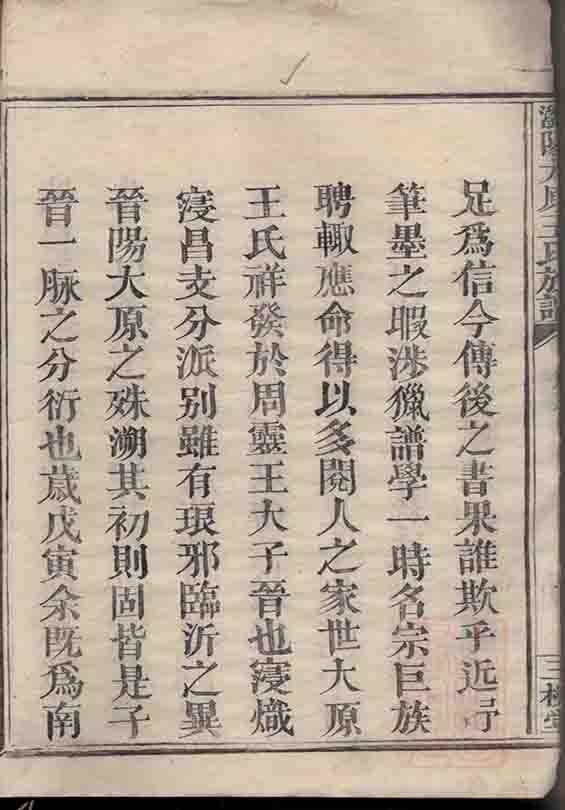 瀏陽大原王氏族譜
三槐堂
足爲信今傳後之書果誰欺乎近
筆墨之暇涉獵譜學一時名宗巨族
聘輙應命得以多閱人之家世大原
王氏祥發於周靈王大子晉也寖熾
寖昌支分派别雖有琅邪臨沂之異
晉陽大原之殊溯其初則固皆是子
晉一脉之分衍也歲戊寅余既爲南